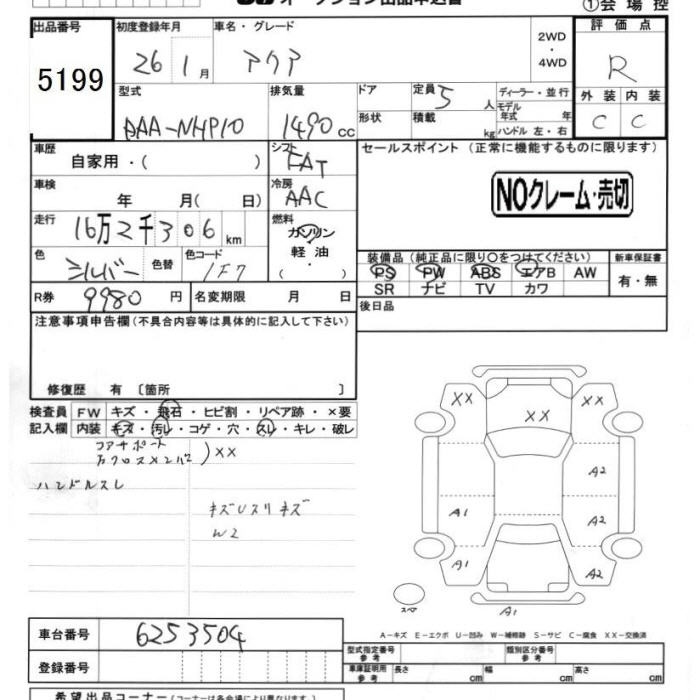 ①会場控
出品番号
5199
初度登録年月
26 1月
車名・グレード
アクア
2WD
・
4WD
評価点
R
外装 内装
C C
型式
DAA-NHP10
排気量
1490cc
ドア
形状
定員 5人
積載 kg
ディーラー・並行
モデル年式 年
ハンドル 左・右
車歴
自家用・( )
シフト
FAT
セールスポイント (正常に機能するものに限ります)
NOクレーム・売切
車検
年 月( 日)
冷房
AAC
走行
16万2千306km
燃料
ガソリン
軽油
・( )
色
シルバー
色替
色コード
1F7
装備品 (純正品に限り○をつけてください)
新車保証書
PS PW ABS エアB AW
有・無
SR ナビ TV カワ
R券
9980円
名変期限 月 日
後日品
注意事項申告欄 (不具合内容等は具体的に記入して下さい)
修復歴 有 〔箇所 〕
検査員
記入欄
FW キズ・飛石・ヒビ割・リペア跡・×要
内装 キズ・汚レ・コゲ・穴・スレ・キレ・破レ
コアサポート
クロスメンバ )XX
ハンドルスレ
キズUスリキズ
W2
XX
XX
XX
A2
A1
A2
A1
A2
スペア
A1
A-キズ E-エクボ U-凹み W-補修跡 S-サビ C-腐食 XX-交換済
車台番号
6253504
登録番号
型式指定番号
参考
類別区分番号
参考
車庫証明用
参考
長さ cm
幅 cm
高さ cm